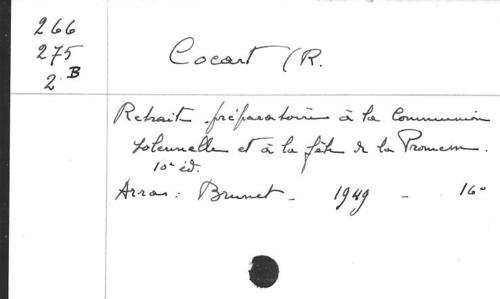 266
275
2 B
Cocart (R.
Retraite préparatoire à la Communion
solennelle et à la fête de la Promesse.
10e éd.
Arras : Brunet - 1949 - 16°